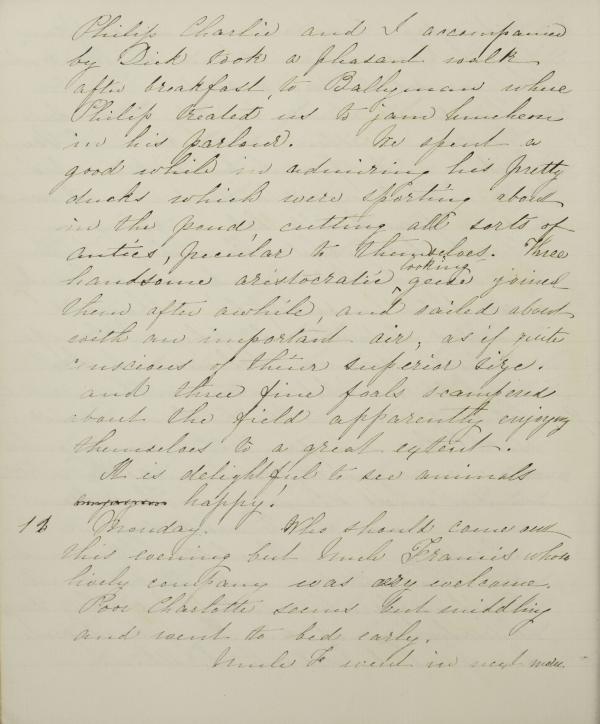 Philip Charlie and I accompanied
by Dick took a pleasant walk
after breakfast, to Ballyman where
Philip treated us to jam luncheon
in his parlour. We spent a
good while in admiring his pretty
ducks which were sporting about
in the pond, cutting all sorts of
antics, peculiar to themselves. Three
handsome aristocratic looking geese joined
them after awhile, and sailed about
with an important air, as if quite
conscious of their superior size.
and three fine foals scampered
about the field apparently enjoying
themselves to a great extent.
It is delightful to see animals
happy!
Monday. Who should come out
this evening but Uncle Francis whose
lively company was very welcome.
Poor Charlotte seems but middling
and went to bed early.
Uncle F went in next morn.